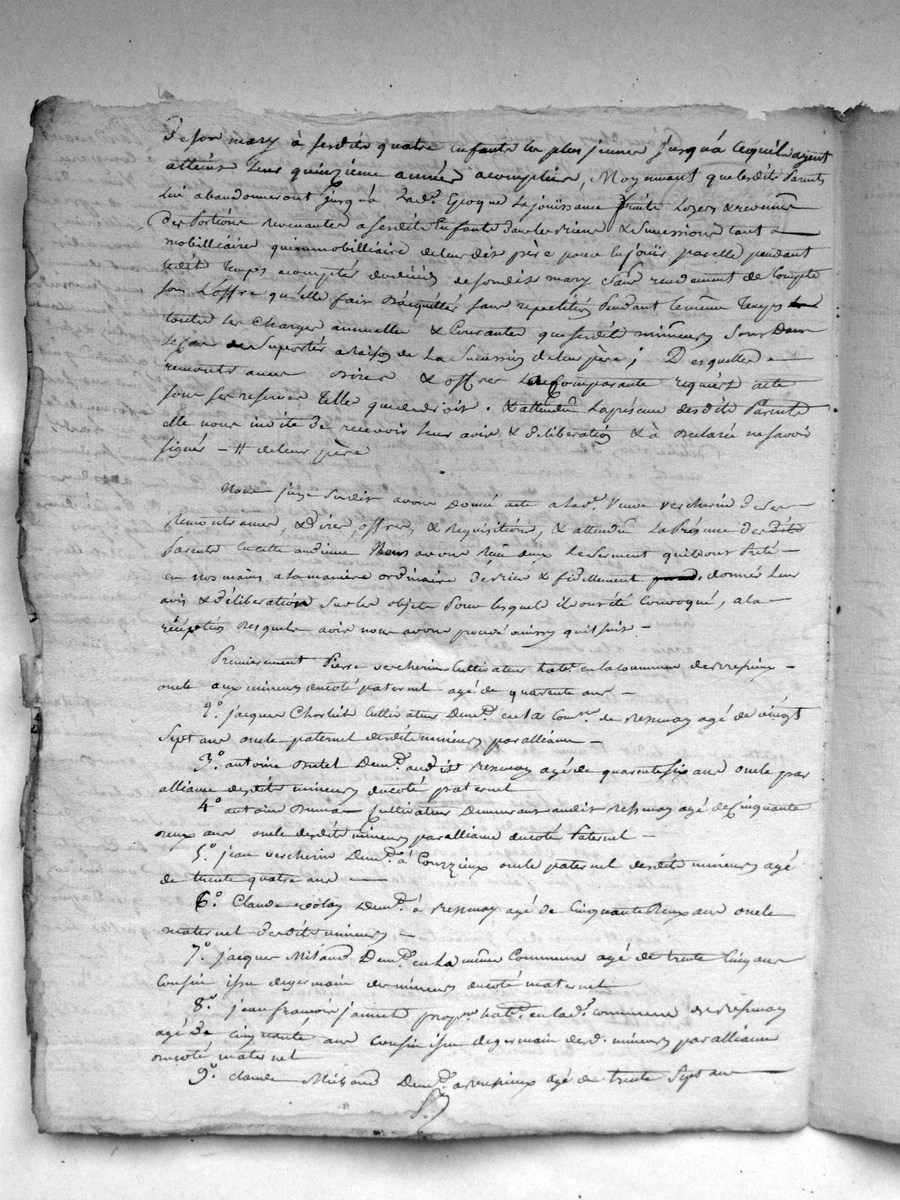 de son mary à sesdits quatre enfants les plus jeunes jusqu'à cequ'ils ayent
atteins leur quinzieme année acomplies, Moyennant que lesdits Parents
lui abandonneront jusqu'à lad.e Epoque la joüissance fruits Loyers & revenus
des Portions revenantes a sesdits Enfants dans les biens & Successions tant
mobilliaire qu'immobilliaire de leur dis père pour le joüir par elle pendant
ledit temps acomptés du décès de sondis mary Sans rendement de Compte
sous L'offre qu'elle fais d'acquitter sans repetition Pendant le même temps
toutes les charges annuelles & Courantes que sesdits mineurs sous dans
le cas de Suportés a raison de la Succession de leur père ; Desquelles
remontrances dires & offres la Comparante requiers acte
sous ses reserves telles que de drois. & attendu la présence desdits Parents
elle nous invite de recevoir leur avis & deliberation & à declaré ne savoir
signer - # de leur père
Nous juge susdit avons donné acte a lad.e Veuve vercherin de ses
Remontrances, dires, offres, & requisitions, & attendu la Présence desdits
Parents en cette audience Nous avons reçu deux le serment qu'ils ous Prêté
en nos mains a la manière ordinaire de bien & fidellement donner leur
avis & déliberation sur les objets Pour lesquels ils ous été Convoqué, a la
réception desquels avis nous avons procédé ainsy qu'il suis -
Premierement Pierre vercherin Cultivateur habt. en la Commune de
oncle aux mineurs du coté paternel agé de quarente ans -
2.º jacques Cultivateur Demt. en la Comne. de Ressenay agé de vingt
Sept ans oncle paternel desdits mineurs par alliance -
3.º antoine Demt. audit agé de quarente six ans oncle par
alliance desdits mineurs du coté paternel
4.º antoine Cultivateur Demeurant audit agé de Cinquante
deux ans oncle desdits mineurs par alliance du coté Paternel -
5.º jean vercherin Demt. à Courzieux oncle paternel desdits mineurs agé
de trente quatre ans
6.º Claude Demt. à agé de Cinquante deux ans oncle
maternel desdits mineurs -
7.º jacques Demt. en la même Commune agé de trente Cinq ans
Cousin issu de germain des mineurs du coté maternel
8.º jean françois propre. habt. en lad.e commune de
agé de cinquante ans cousin issu de germain desd. mineurs par alliance
du coté maternel
9.º Claude Demt. agé de trente Sept ans